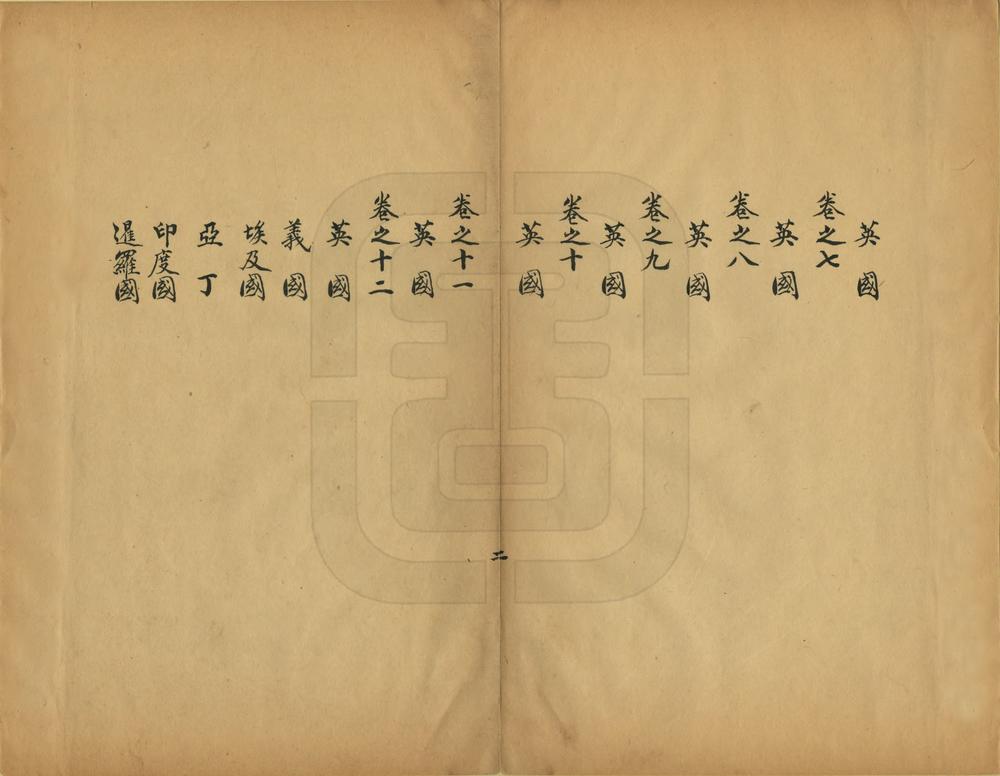 英國
卷之七
英國
卷之八
英國
卷之九
英國
卷之十
英國
二
卷之十一
英國
卷之十二
英國
義國
埃及國
亞丁
印度國
暹羅國